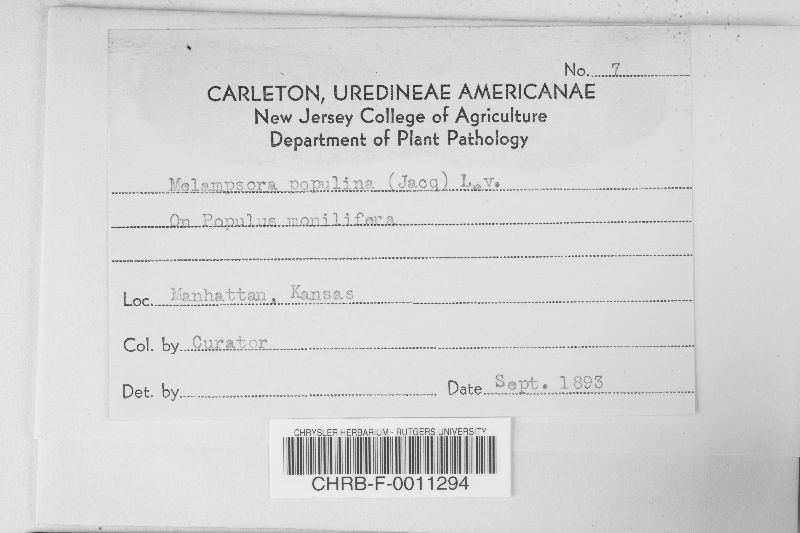 No. 7
CARLETON, UREDINEAE AMERICANAE
New Jersey College of Agriculture
Department of Plant Pathology
Melampsora populina (Jacq) Lev.
On Populus monilifera
Loc. Manhattan, Kansas
Col. by Curator
Det. by
Date Sept. 1893
CHRYSLER HERBARIUM - RUTGERS UNIVERSITY
CHRB-F-0011294